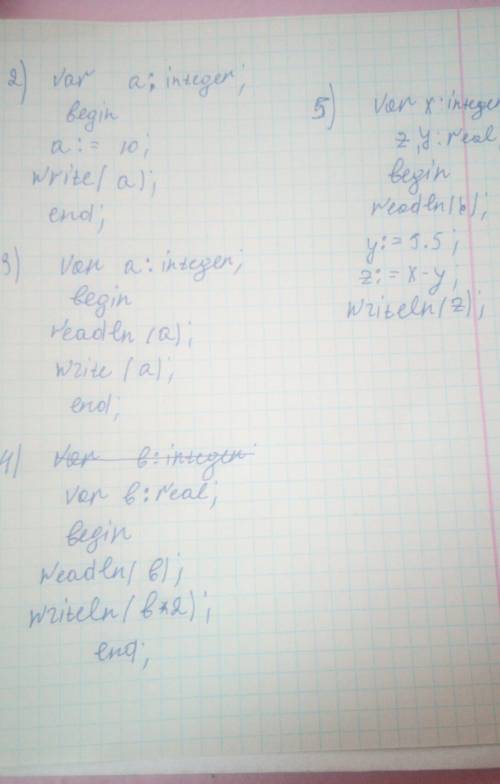 2) var a: integer;
begin
a := 10;
write(a);
end;
3) var a: integer;
begin
readln (a);
write (a);
end;
4) var b: integer
var b: real;
begin
readln( b);
writeln( b*2);
end;
5) var x: integer
z, y: real,
begin
readln( );
y:= 5.5;
z:= x-y;
writeln(z);